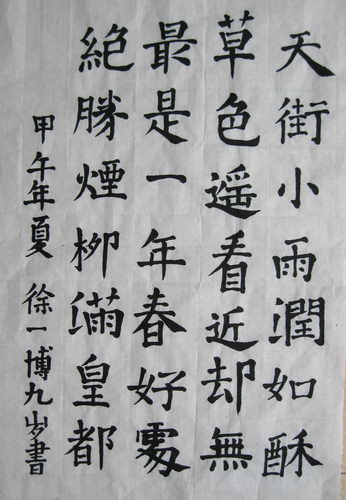 天街小雨潤如酥
草色遥看近却無
最是一年春好處
絕勝煙柳滿皇都
甲午年夏 徐一博九岁書